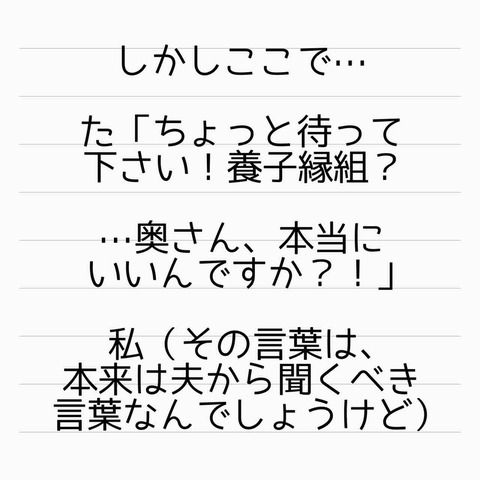 しかしここで…
た「ちょっと待って
下さい！養子縁組？
…奥さん、本当に
いいんですか？！」
私（その言葉は、
本来は夫から聞くべき
言葉なんでしょうけど）